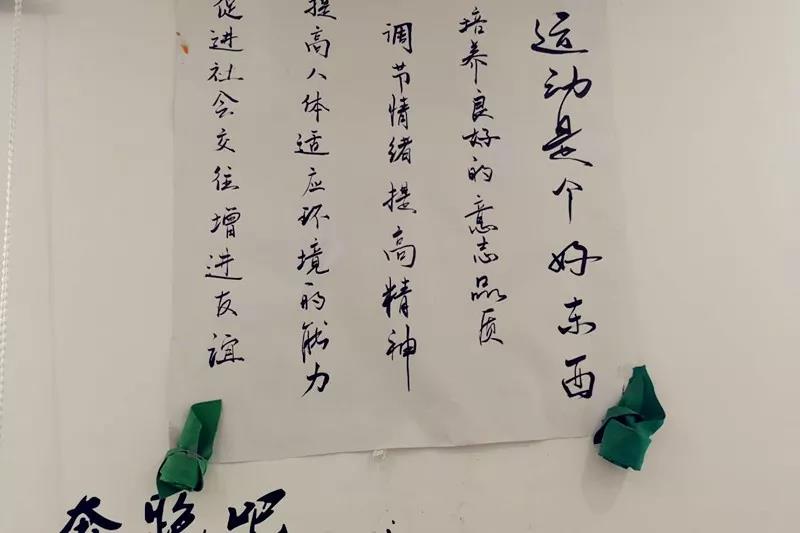 运动是个好东西
培养良好的意志品质
调节情绪提高精神
提高人体适应环境的能力
促进社会交往增进友谊
奔跑吧